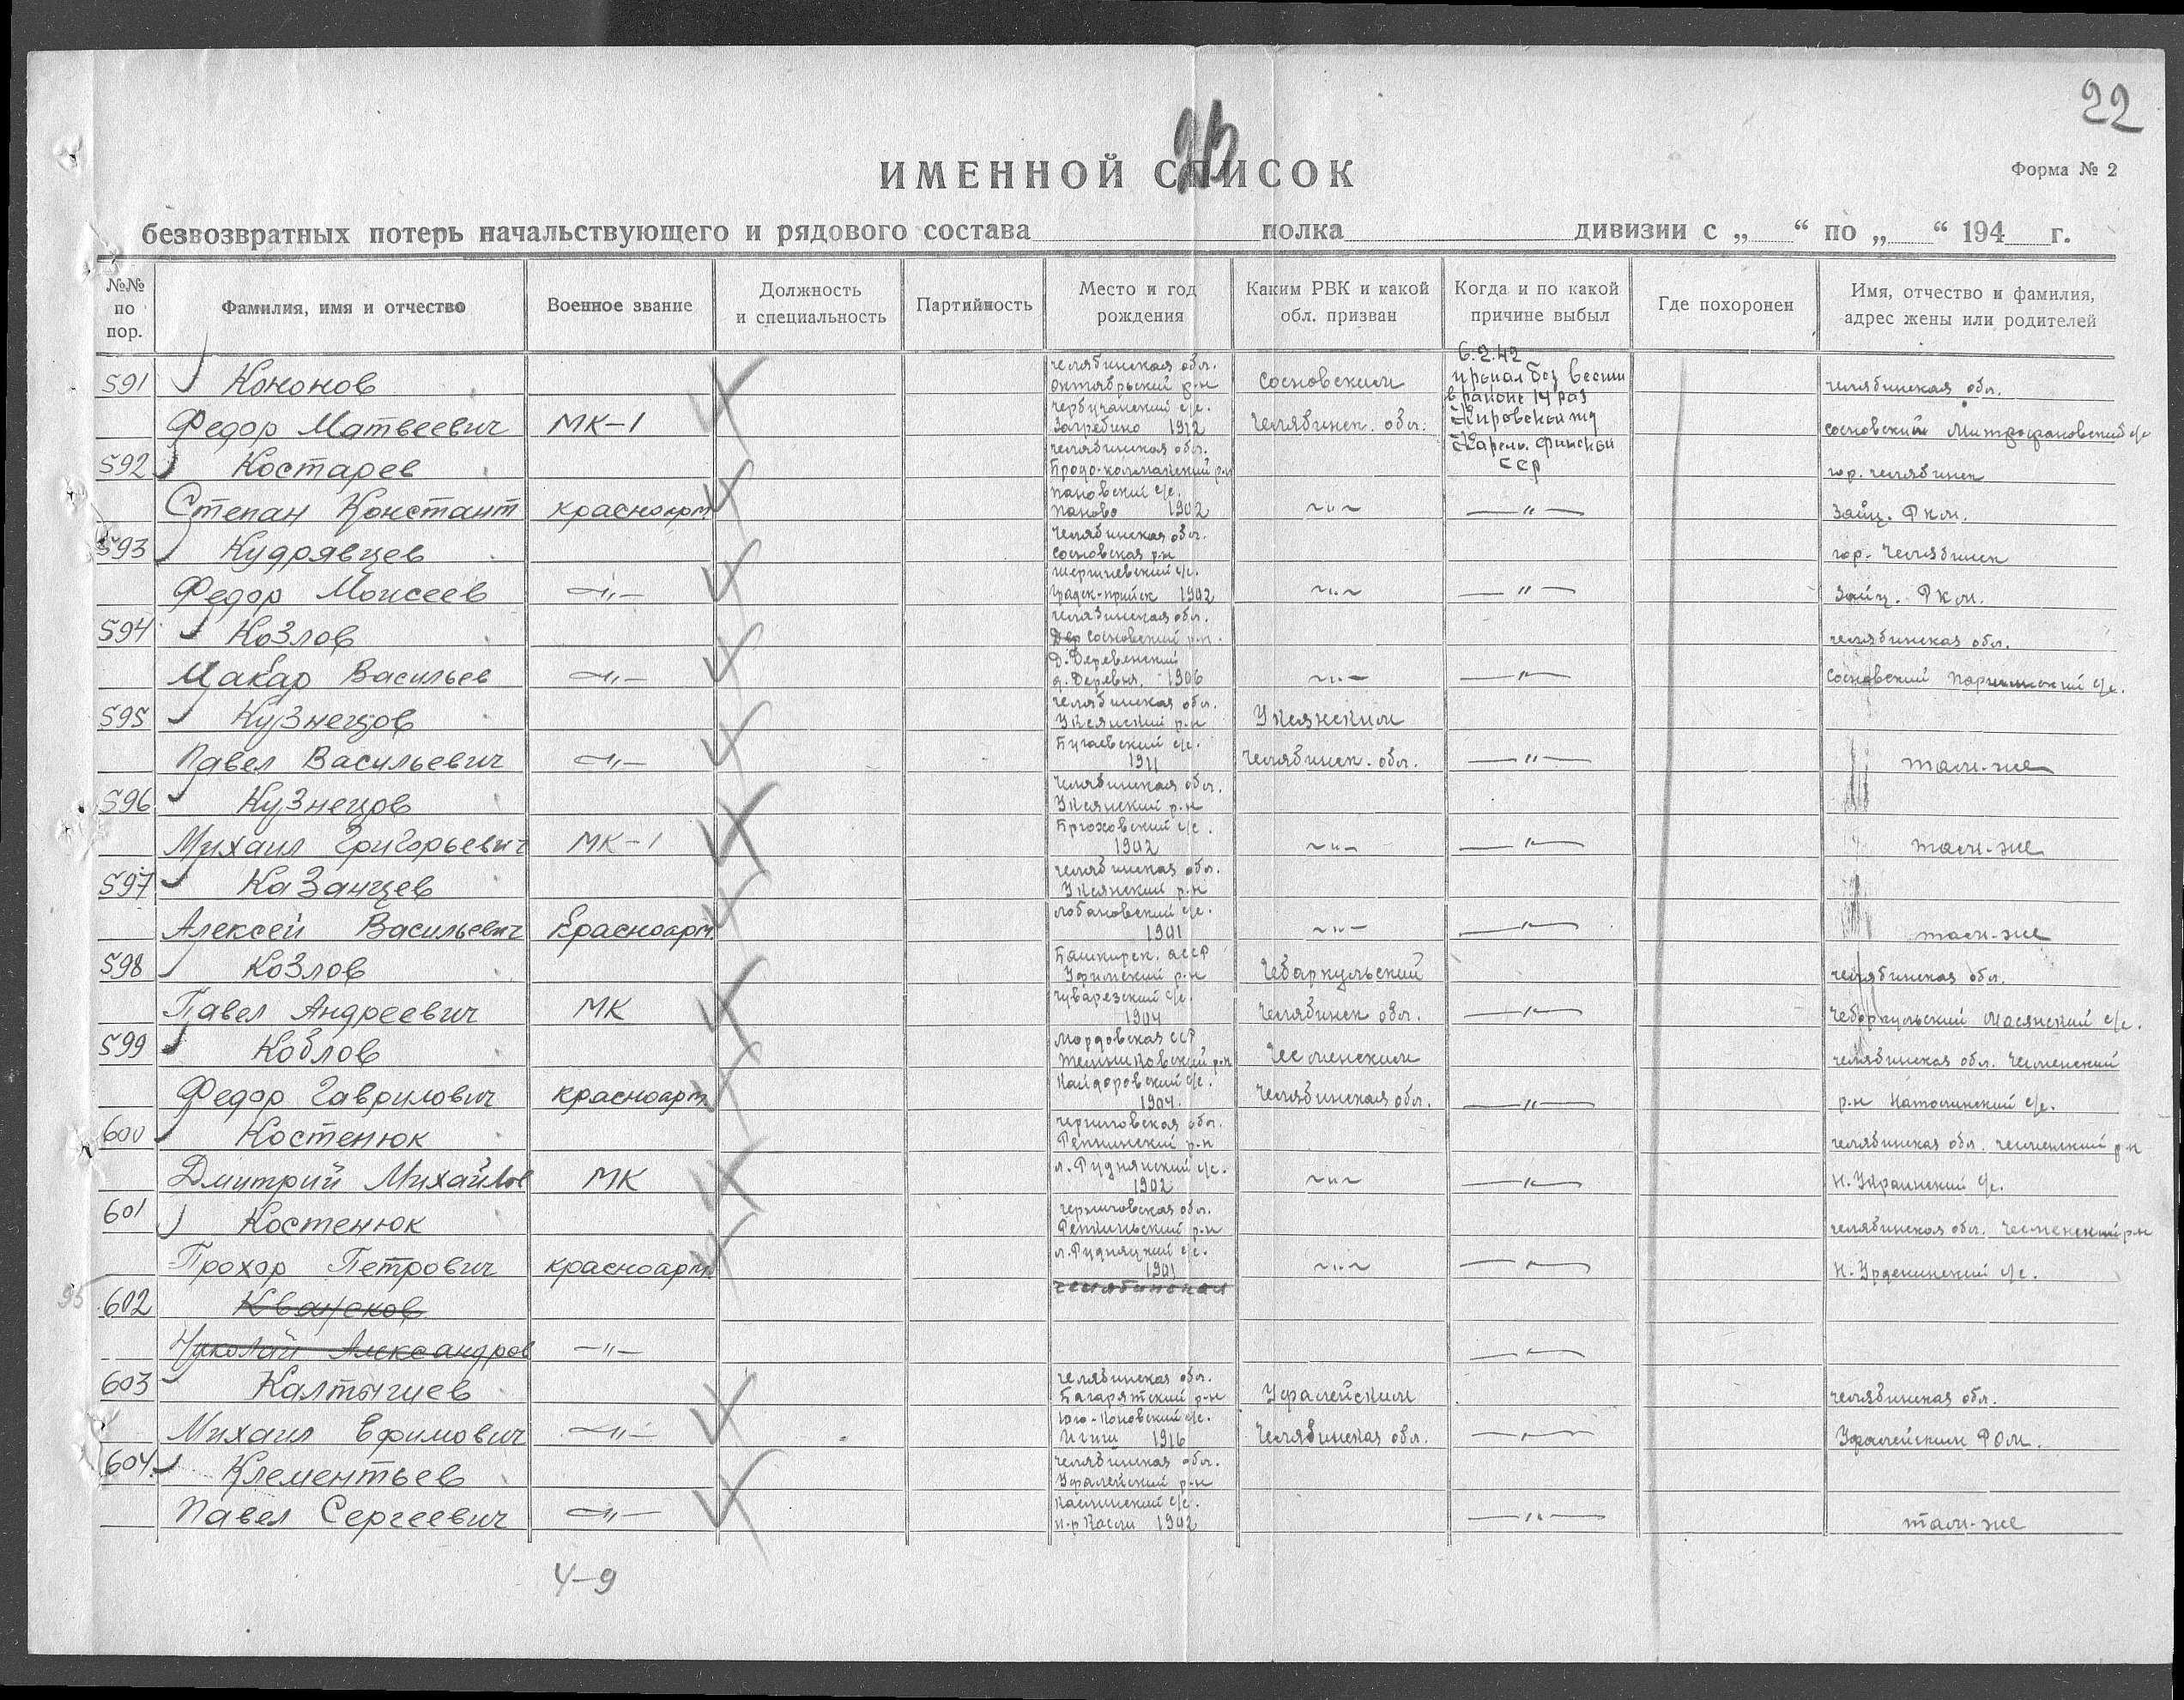 22
ИМЕННОЙ СПИСОК
Форма № 2
безвозвратных потерь начальствующего и рядового состава полка дивизии с „ “ по „ “ 194 г.
№№ по пор.
Фамилия, имя и отчество
Военное звание
Должность и специальность
Партийность
Место и год рождения
Каким РВК и какой обл. призван
Когда и по какой причине выбыл
Где похоронен
Имя, отчество и фамилия, адрес жены или родителей
6.2.42
челябинская обл.
591 Кононов октябрьский р-н сосновским пропал без вести челябинская обл.
в районе 14 раз
Федор Матвеевич МК-1 Загребино 1912 челябинск. обл. Кировской жд сосновский Митрофановский с/с
челябинская обл. Карело. финской
592 Костарев р-н ССР гор. челябинск
пановский с/с.
Степан Констант красноарм. паново 1902 ~"~ —"— Зайц. Р к м.
челябинская обл.
593 Кудрявцев сосновская р-н гор. челябинск
с/с.
Федор Моисеев —"— 1902 ~"~ —"— Зайц. Р к м.
челябинская обл.
594 Козлов сосновский р-н. челябинская обл.
Д. Деревенский
Макар Васильев —"— д. Деревня. 1906 ~"~ —"— сосновский с/с.
челябинская обл.
595 Кузнецов Уксянский р-н Уксянским
Бугаевский с/с.
Павел Васильевич —"— 1911 челябинск. обл. —"— там-же
челябинская обл.
596 Кузнецов Уксянский р-н
с/с.
Михаил Григорьевич МК-1 1902 ~"~ —"— там-же
челябинская обл.
597 Казанцев Уксянский р-н
лобановский с/с.
Алексей Васильевич Красноарм. 1901 ~"~ —"— там-же
Башкирск. асср
598 Козлов Уфимский р-н Чебаркульский челябинская обл.
с/с.
Павел Андреевич МК 1904 челябинск обл. —"— чебаркульский с/с.
Мордовская ССР
599 Козлов р-н Чесменским челябинская обл. Чесменский
с/с.
Федор Гаврилович красноарм. 1904. Челябинская обл. —"— р-н с/с.
черниговская обл.
600 Костенюк Репкинский р-н челябинская обл. чесменский р-н
л. Руднянский с/с.
Дмитрий Михайлов МК 1902 ~"~ —"— Н. Украинский с/с.
черниговская обл.
601 Костенюк р-н челябинская обл. чесменский р-н
с/с.
Прохор Петрович красноарм. 1901 ~"~ —"— с/с.
челябинская
95 602
Николай Александров —"— —"—
челябинская обл.
603 Калтышев Багарятский р-н Уфалейским челябинская обл.
с/с.
Михаил Ефимович —"— 1916 Челябинская обл. —"— Уфалейским РОМ.
челябинская обл.
604 Клементьев Уфалейский р-н
Каслинский с/с.
Павел Сергеевич —"— Касли 1902 —"— там-же
4-9